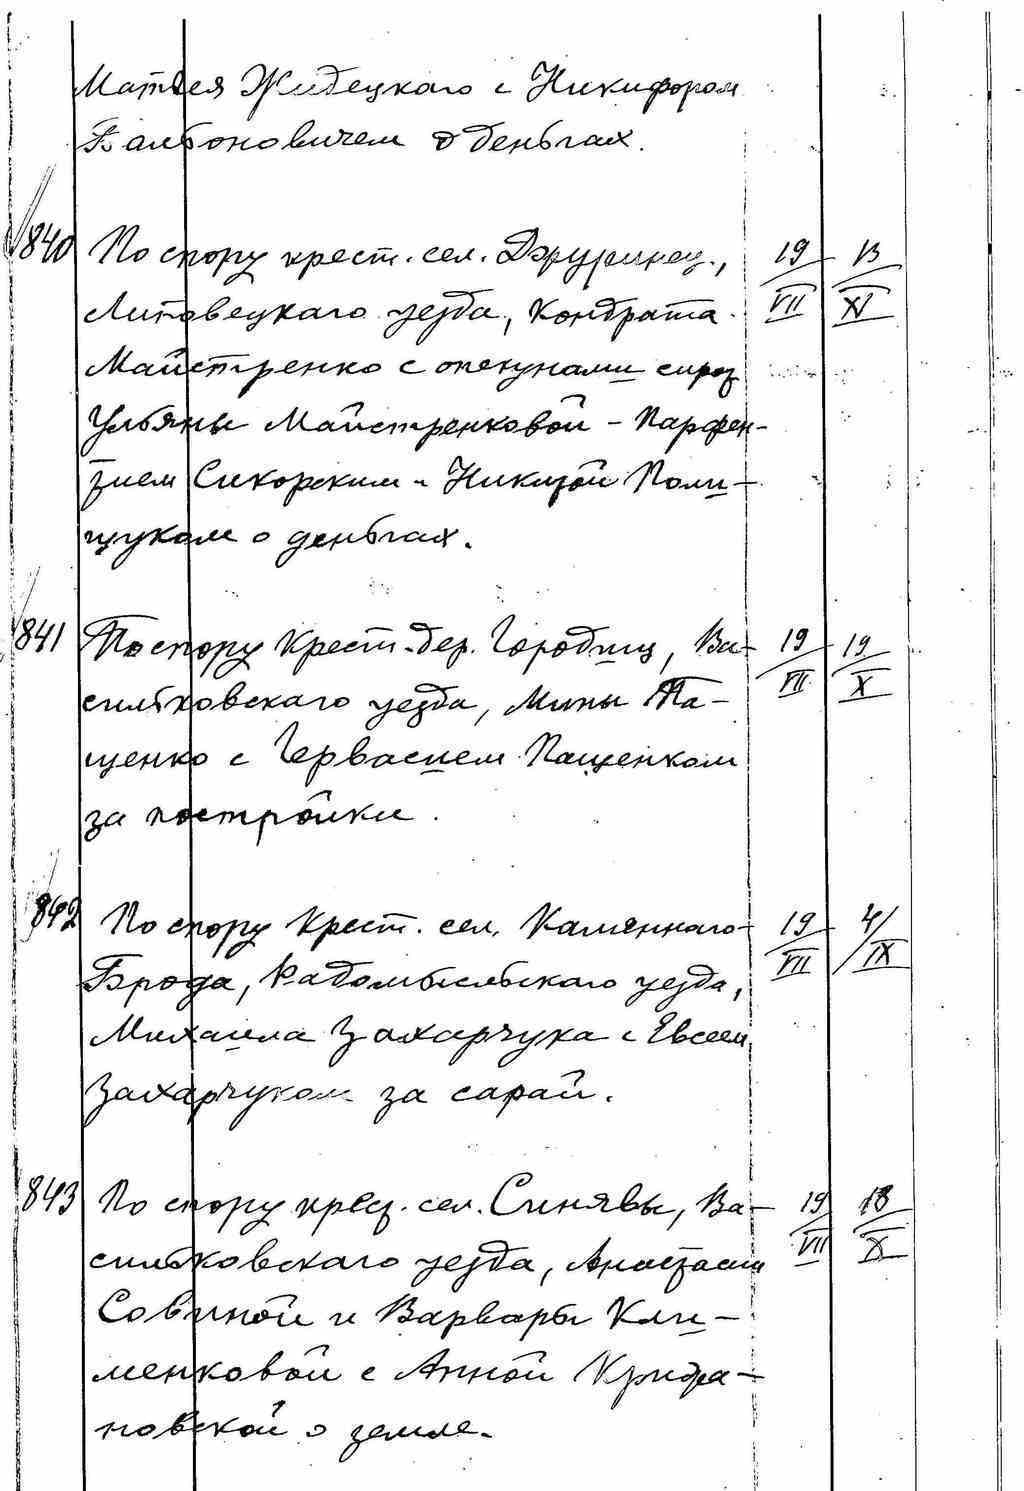 Матвея Жидецкаго с Никифором
Балбоновичем о деньгах.
840 По спору крест. сел. Джуринец., 19/VII 13/XI
Липовецкаго уезда, Кондрата
Майстренко с опекунами сирот
Ульяны Майстренковой - Парфен-
тием Сикорским и Никитой Поли-
щуком о деньгах.
841 По спору крест. дер. Городищ, Ва- 19/VII 19/X
сильковскаго уезда, Мины Па-
щенко с Гервасием Пащенком
за постройки.
842 По спору крест. сел. Каменнаго- 19/VII 4/IX
Брода, Радомысльскаго уезда,
Михаила Захарчука с Евсеем
Захарчуком за сарай.
843 По спору крест. сел. Синявы, Ва- 19/VII 18/X
сильковскаго уезда, Анастасии
Совиной и Варвары Кли-
менковой с Анной Крижа-
новской о земле.